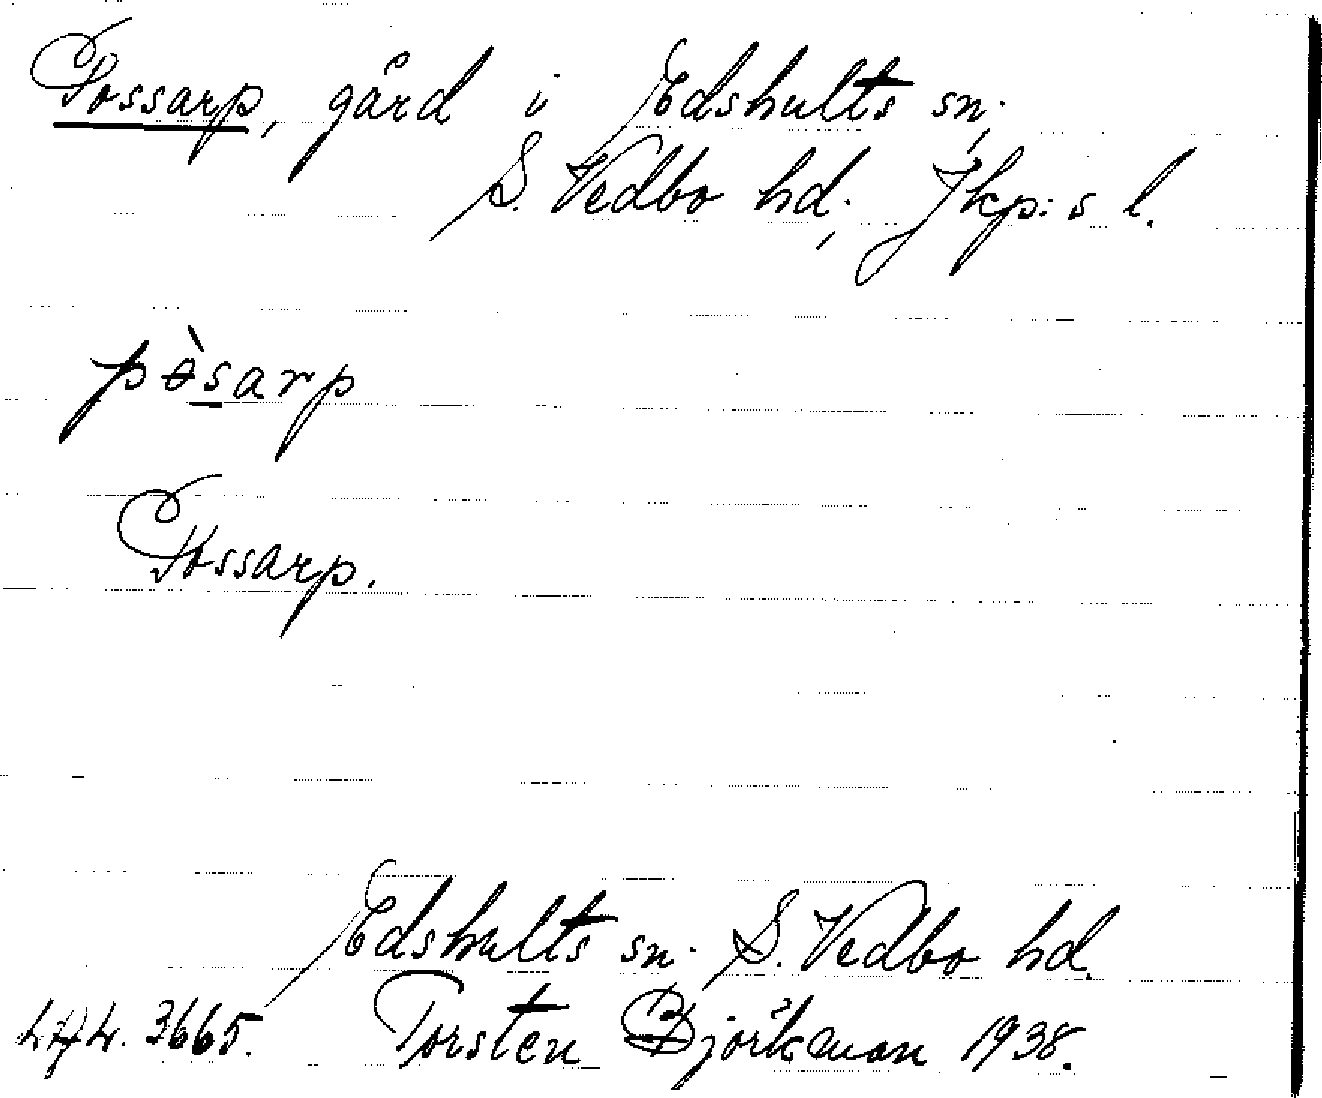 Possarp, gård i Edshults sn;
S. Vedbo hd; Jkp:s l.
pɵ̀s̲arp
Possarp.
Edshults sn. S. Vedbo hd.
3665. Torsten Björkman 1938.